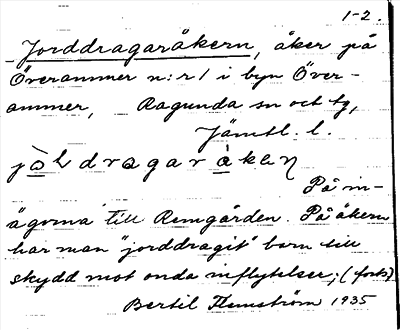 1-2.
Jorddragaråkern, åker på
Överammer n:r 1 i byn Över-
ammer, Ragunda sn och tg,
Jämtl. l.
På in-
ägorna till Remgården. På åkern
har man "jorddragit" barn till
skydd mot onda inflytelser; (forts)
Bertil Flemström 1935